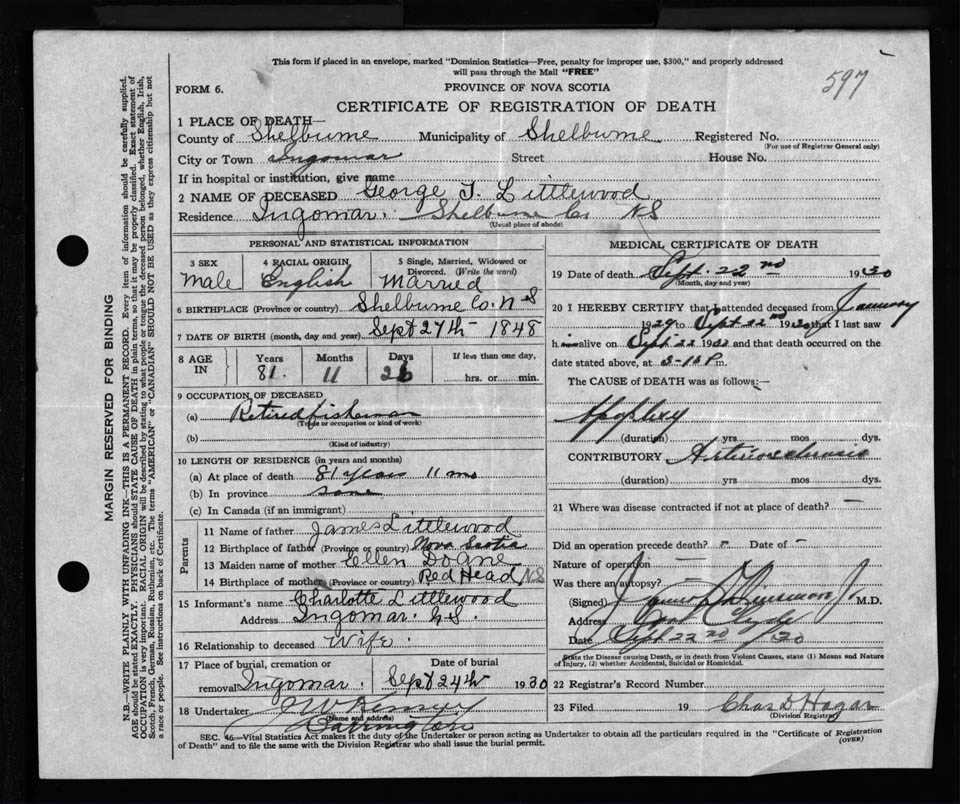 This form if placed in an envelope, marked "Dominion Statistics—Free, penalty for improper use, $300," and properly addressed
will pass through the Mail "FREE"
597
FORM 6.
PROVINCE OF NOVA SCOTIA
CERTIFICATE OF REGISTRATION OF DEATH
1 PLACE OF DEATH—
County of Shelburne Municipality of Shelburne Registered No.
(For use of Registrar General only)
City or Town Ingomar Street House No.
If in hospital or institution, give name
2 NAME OF DECEASED George T. Littlewood
Residence Ingomar. Shelburne Co NS
(Usual place of abode)
PERSONAL AND STATISTICAL INFORMATION
3 SEX 4 RACIAL ORIGIN 5 Single, Married, Widowed or
Divorced. (Write the word)
Male English Married
6 BIRTHPLACE (Province or country) Shelburne Co. N-S
7 DATE OF BIRTH (month, day and year) Sept 27th 1848
8 AGE IN Years Months Days If less than one day,
81 11 26 hrs. or min.
9 OCCUPATION OF DECEASED
(a) Retired fisherman
(Trade or occupation or kind of work)
(b)
(Kind of industry)
10 LENGTH OF RESIDENCE (in years and months)
(a) At place of death 81 years 11 mo
(b) In province same
(c) In Canada (if an immigrant)
Parents
11 Name of father James Littlewood
12 Birthplace of father (Province or country) Nova Scotia
13 Maiden name of mother Ellen Doane
14 Birthplace of mother (Province or country) Red Head, NS
15 Informant's name Charlotte Littlewood
Address Ingomar. N.S.
16 Relationship to deceased Wife.
17 Place of burial, cremation or Date of burial
removal Ingomar. Sept 24th 1930
18 Undertaker
(Name and address)
Barrington
MEDICAL CERTIFICATE OF DEATH
19 Date of death Sept. 22nd 1930
(Month, day and year)
20 I HEREBY CERTIFY that I attended deceased from January
1929 to Sept 22nd 1930 that I last saw
h im alive on Sept 22 1930 and that death occurred on the
date stated above, at P m.
The CAUSE OF DEATH was as follows:—
Apoplexy
(duration) yrs mos dys.
CONTRIBUTORY Arteriosclerosis
(duration) yrs. mos. dys.
21 Where was disease contracted if not at place of death? —
Did an operation precede death? – Date of –
Nature of operation —
Was there an autopsy?
(Signed) M.D.
Address Port Clyde
Date Sept 22nd /30
State the Disease causing Death, or in death from Violent Causes, state (1) Means and Nature
of Injury, (2) whether Accidental, Suicidal or Homicidal.
22 Registrar's Record Number
23 Filed 19 Chas D. Hagar
(Division Registrar)
SEC. 46—Vital Statistics Act makes it the duty of the Undertaker or person acting as Undertaker to obtain all the particulars required in the "Certificate of Registration
of Death" and to file the same with the Division Registrar who shall issue the burial permit.
(OVER)
MARGIN RESERVED FOR BINDING
N.B.—WRITE PLAINLY WITH UNFADING INK—THIS IS A PERMANENT RECORD. Every item of information should be carefully supplied.
AGE should be stated EXACTLY. PHYSICIANS should STATE CAUSE OF DEATH in plain terms, so that it may be properly classified. Exact statement of
OCCUPATION is very important. RACIAL ORIGIN will be described by stating to what people or tongue the deceased person belonged, whether English, Irish,
Scotch, French, German, Russian, Ruthenian, etc. The terms "AMERICAN" or "CANADIAN" SHOULD NOT BE USED as they express citizenship but not
a race or people. See instructions on back of Certificate.